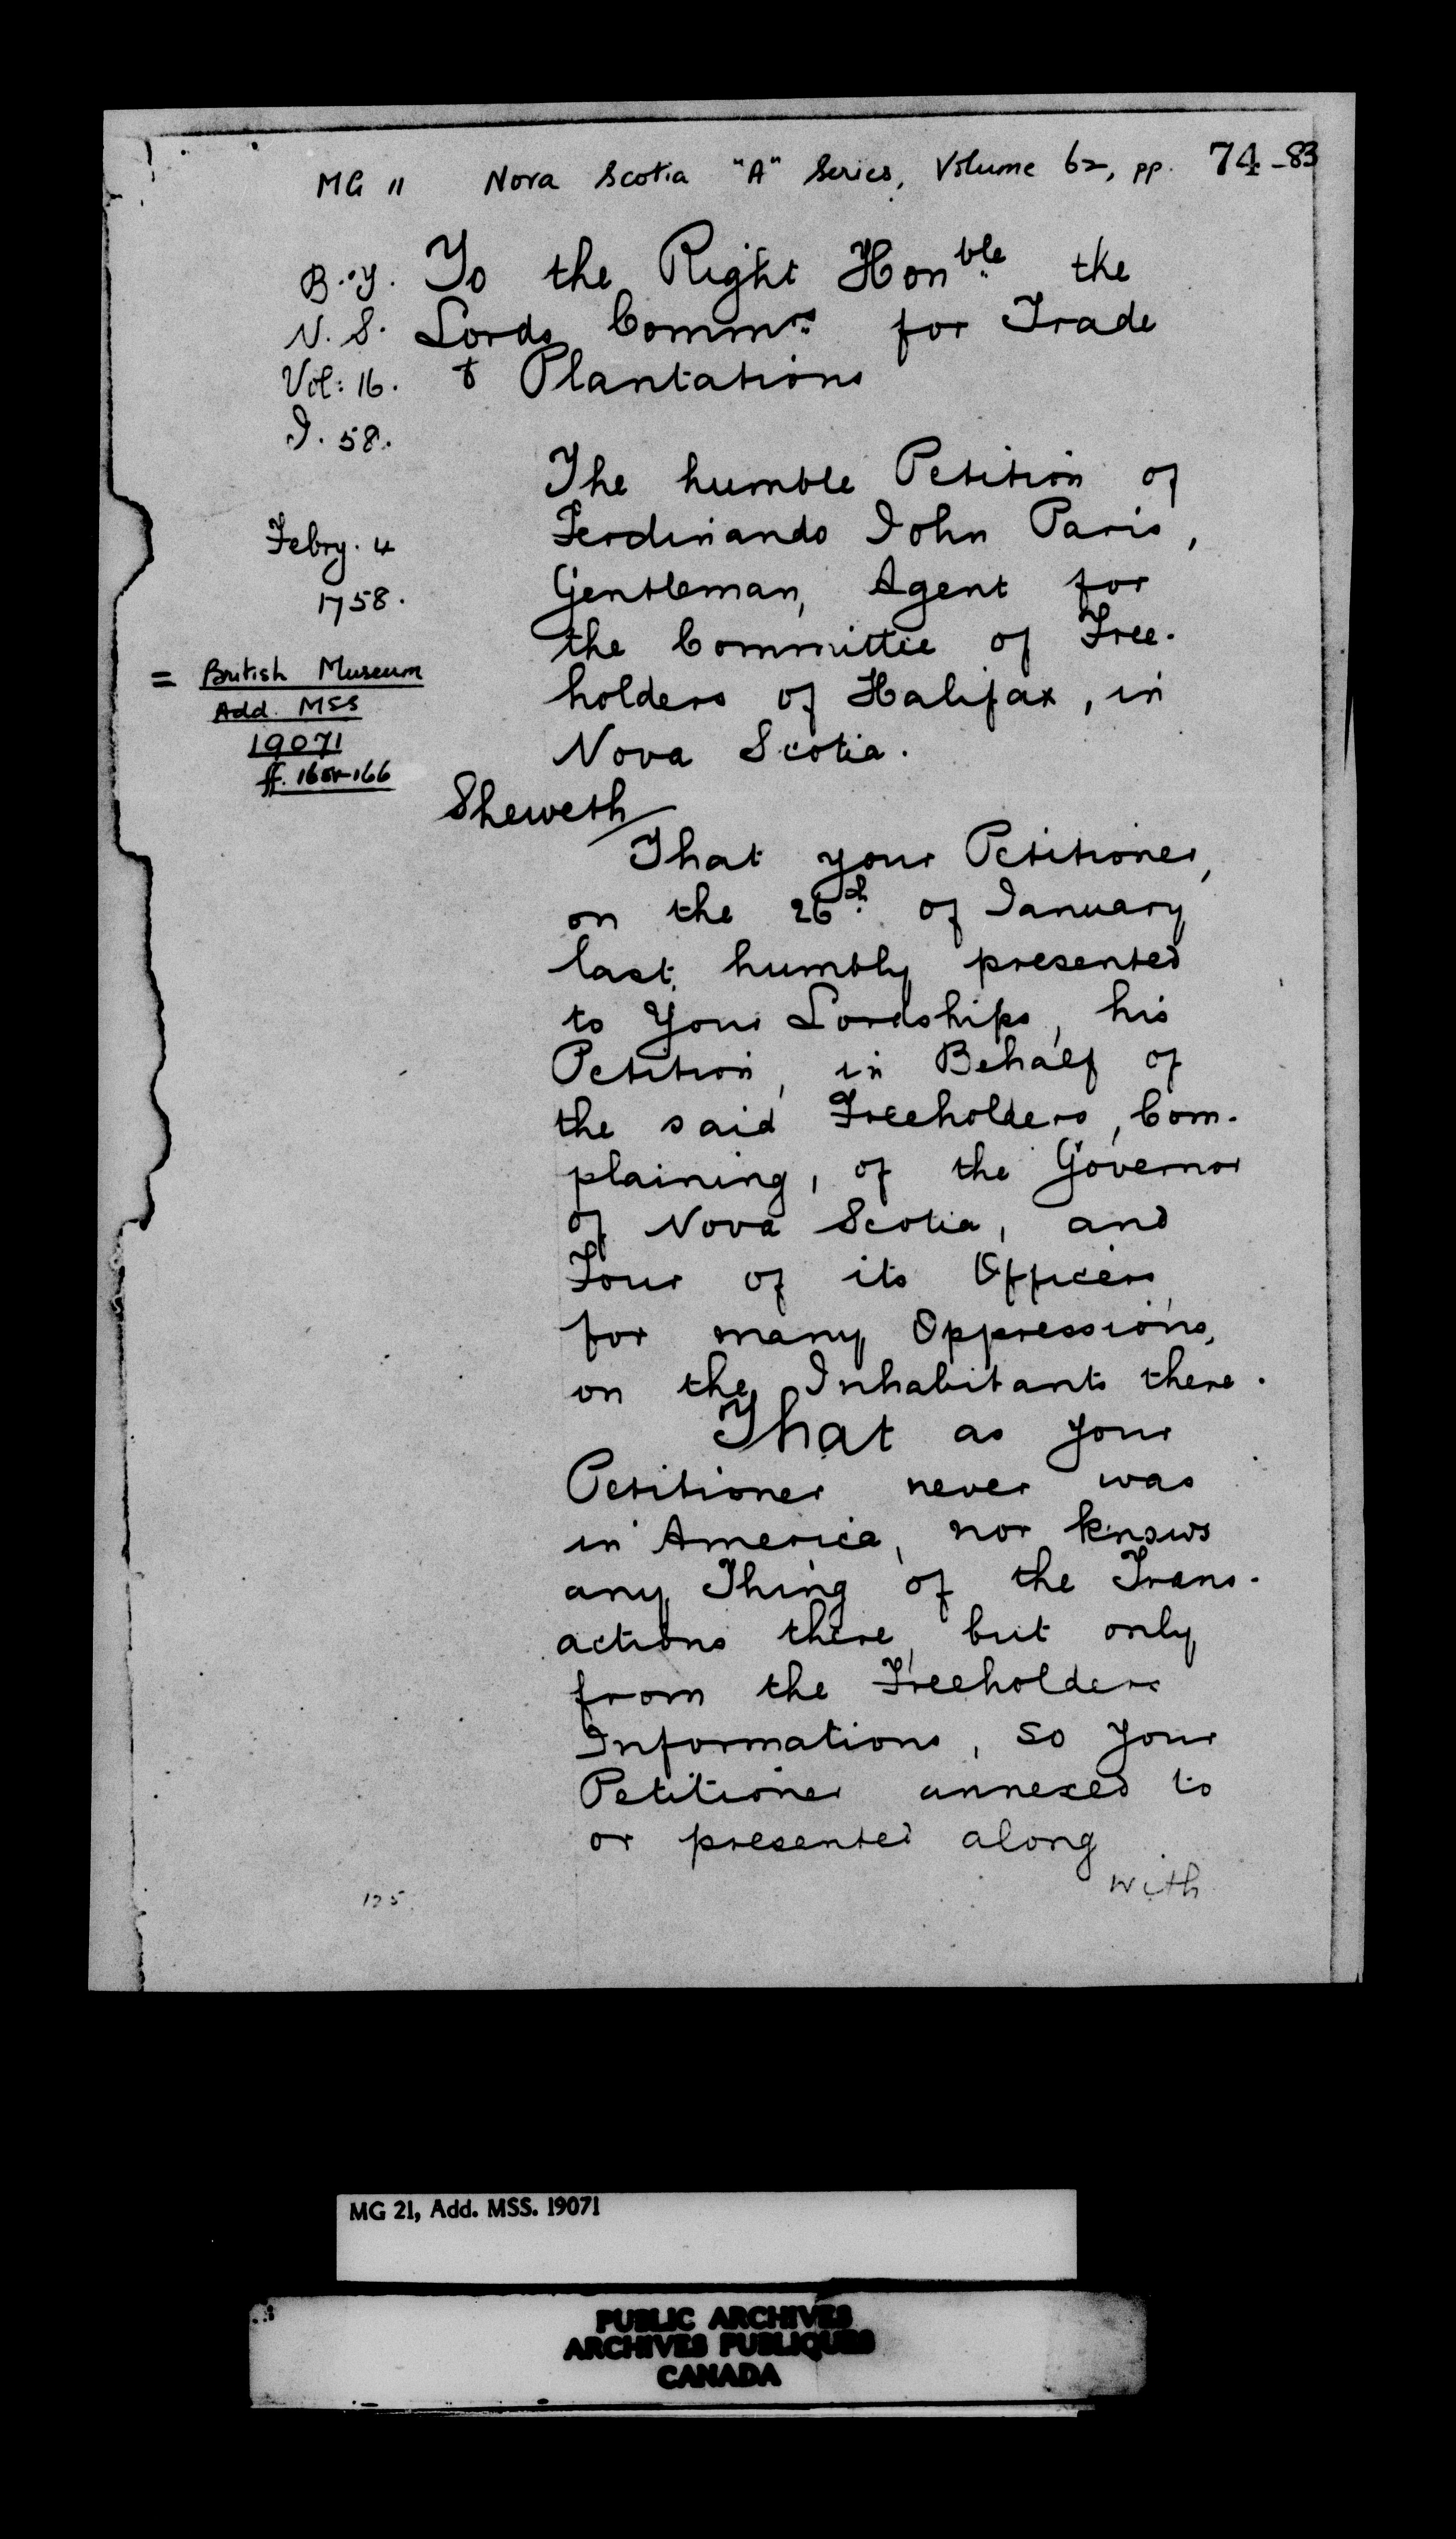 MG 11 Nova Scotia "A" Series, Volume 62, pp. 74-83
B.Y. To the Right Honble the
N. S. Lords Commrs for Trade
Vol: 16. & Plantations
I. 58.
The humble Petition of
Febry. 4 Ferdinando John Paris,
1758. Gentleman, Agent for
the Committee of Free-
= British Museum holders of Halifax, in
Add. MSS
19071 Nova Scotia.
ff. 165-166
Sheweth
That your Petitioner,
on the 26th of January
last, humbly presented
to Your Lordships, his
Petition, in Behalf of
the said Freeholders, Com-
plaining, of the Governor
of Nova Scotia, and
Four of its Officers,
for many Oppressions,
on the Inhabitants there.
That as your
Petitioner never was
in America, nor knows
any Thing of the Trans-
actions there, but only
from the Freeholders
Informations, so your
Petitioner annexed to
or presented along
with
125.
MG 21, Add. MSS. 19071
PUBLIC ARCHIVES
ARCHIVES PUBLIQUES
CANADA